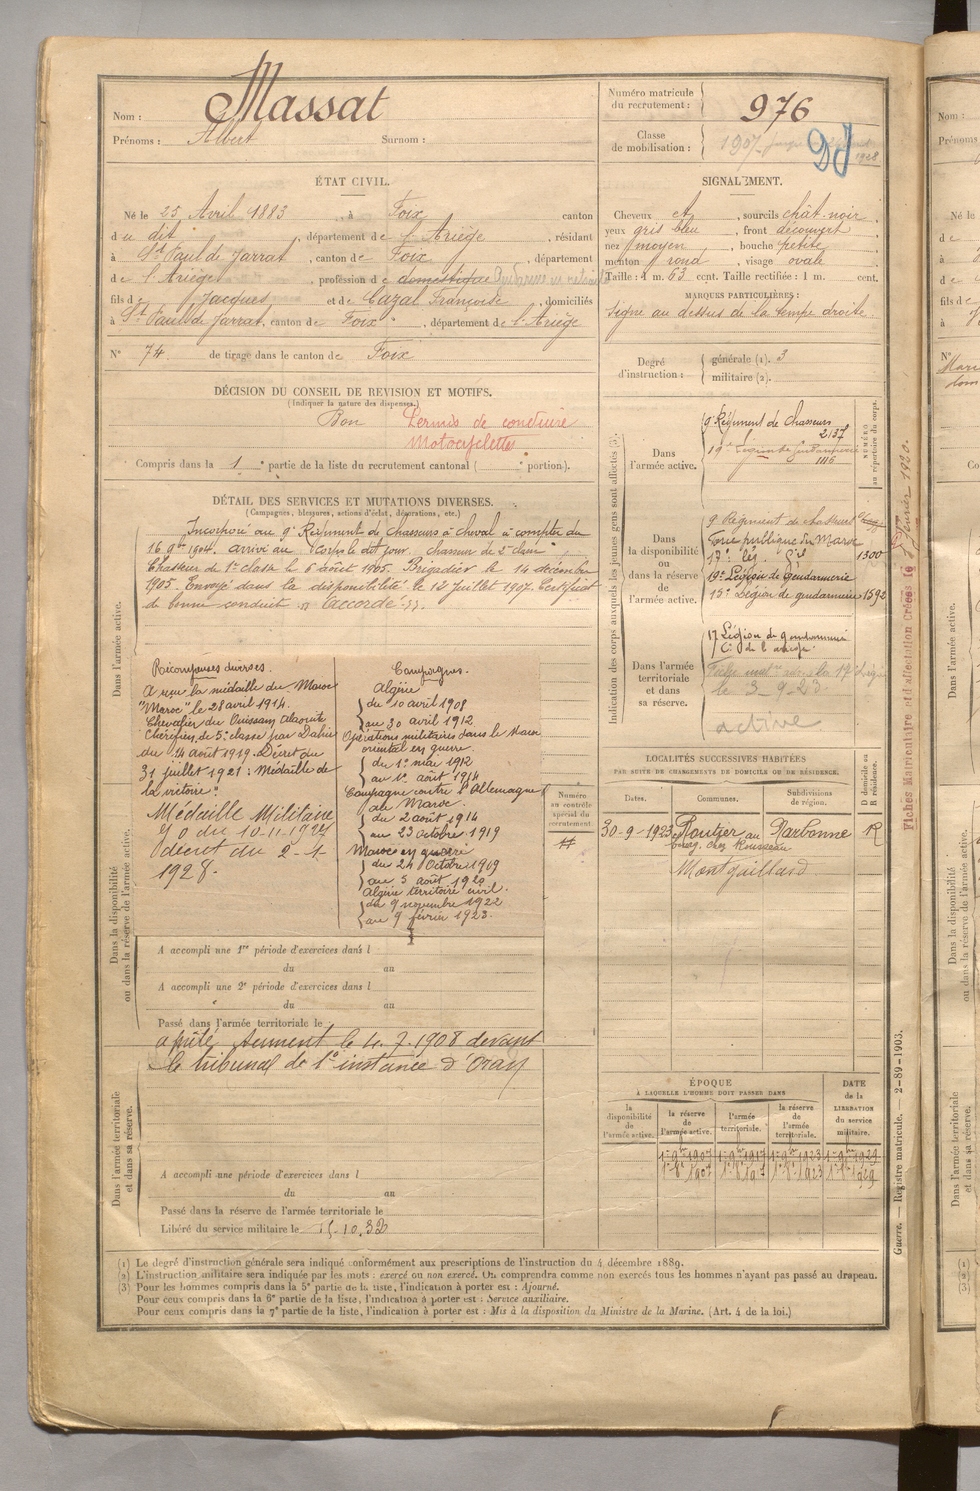 Nom : Massat
Prénoms : Albert Surnom :
Numéro matricule du recrutement : 976
Classe de mobilisation : 1907
1928
DJ
ÉTAT CIVIL.
Né le 25 Avril 1883, à Foix canton
du dit, département de l'Ariège, résidant
à St Paul de Jarrat, canton de Foix, département
de l'Ariège, profession de domestique Gendarme en retraite
fils de Jacques et de Cazal Françoise, domiciliés
à St Paul de Jarrat, canton de Foix, département de l'Ariège
N° 74 de tirage dans le canton de Foix
SIGNALEMENT.
Cheveux et, sourcils chât-noir
yeux gris bleu, front découvert
nez moyen, bouche petite
menton rond, visage ovale
Taille : 1 m. 63 cent. Taille rectifiée : 1 m. cent.
MARQUES PARTICULIÈRES :
Signe au dessus de la tempe droite.
Degré d'instruction : générale (1). 3
militaire (2).
DÉCISION DU CONSEIL DE REVISION ET MOTIFS.
(Indiquer la nature des dispenses.)
Bon
Permis de conduire
Motocyclettes
Compris dans la 1e partie de la liste du recrutement cantonal ( e portion).
DÉTAIL DES SERVICES ET MUTATIONS DIVERSES.
(Campagnes, blessures, actions d'éclat, décorations, etc.)
Dans l'armée active.
Incorporé au 9e Régiment de chasseurs à cheval à compter du
16 9bre 1904. arrivé au Corps le dit jour. chasseur de 2e classe
Chasseur de 1e classe le 6 août 1905. Brigadier le 14 décembre
1905. Envoyé dans la disponibilité le 12 Juillet 1907. Certificat
de bonne conduite "Accordé".
Récompenses diverses.
A reçu la médaille du Maroc
"Maroc" le 28 avril 1914.
Chevalier du Ouissam Alaouite
Chérifien de 5e classe par Dahir
du 14 août 1919. Décret du
31 juillet 1921 : Médaille de
la victoire.
Médaille Militaire
JO du 10-11-1927
décret du 2-1-
1928.
Campagnes.
Algérie
du 10 avril 1908
au 30 avril 1912
Opérations militaires dans le Maroc
oriental en guerre.
du 1er mai 1912
au 1er août 1914
Campagne contre l'Allemagne
au Maroc.
du 2 août 1914
au 23 octobre 1919
Maroc en guerre
du 24 Octobre 1919
au 5 août 1920
Algérie territoire civil.
du 9 novembre 1922
au 9 février 1923.
Dans la disponibilité
ou dans la réserve de l'armée active.
A accompli une 1re période d'exercices dans l
du au
A accompli une 2e période d'exercices dans l
du au
Passé dans l'armée territoriale le
a prêté serment le 4.7.1908 devant
le tribunal de 1e instance d'Oran
Dans l'armée territoriale
et dans sa réserve.
A accompli une période d'exercices dans l
du au
Passé dans la réserve de l'armée territoriale le
Libéré du service militaire le 15.10.32
Indication des corps auxquels les jeunes gens sont affectés (3).
NUMÉRO au répertoire du corps.
Dans l'armée active.
9e Régiment de Chasseurs
2137
19e Légion de Gendarmerie
1116
Dans la disponibilité ou dans la réserve de l'armée active.
9 Régiment de chasseurs
Force publique du Maroc
17e
1300
19e Légion de Gendarmerie
15e Légion de gendarmerie 1592
Dans l'armée territoriale et dans sa réserve.
17 Légion de gendarmerie
Cie de l'ariège
le 3-9-23.
active
LOCALITÉS SUCCESSIVES HABITÉES
PAR SUITE DE CHANGEMENTS DE DOMICILE OU DE RÉSIDENCE.
Numéro au contrôle spécial du recrutement
Dates. Communes. Subdivisions de région. D domicile ou R résidence.
30-9-1923 Narbonne R
chez Rousseau
Montgaillard
ÉPOQUE
À LAQUELLE L'HOMME DOIT PASSER DANS
la disponibilité de l'armée active.
la réserve de l'armée active.
l'armée territoriale.
la réserve de l'armée territoriale.
DATE de la LIBÉRATION du service militaire.
(1) Le degré d'instruction générale sera indiqué conformément aux prescriptions de l'instruction du 4 décembre 1889.
(2) L'instruction militaire sera indiquée par les mots : exercé ou non exercé. On comprendra comme non exercés tous les hommes n'ayant pas passé au drapeau.
(3) Pour les hommes compris dans la 5e partie de la liste, l'indication à porter est : Ajourné.
Pour ceux compris dans la 6e partie de la liste, l'indication à porter est : Service auxiliaire.
Pour ceux compris dans la 7e partie de la liste, l'indication à porter est : Mis à la disposition du Ministre de la Marine. (Art. 4 de la loi.)
Guerre. — Registre matricule. — 2-89-1903.